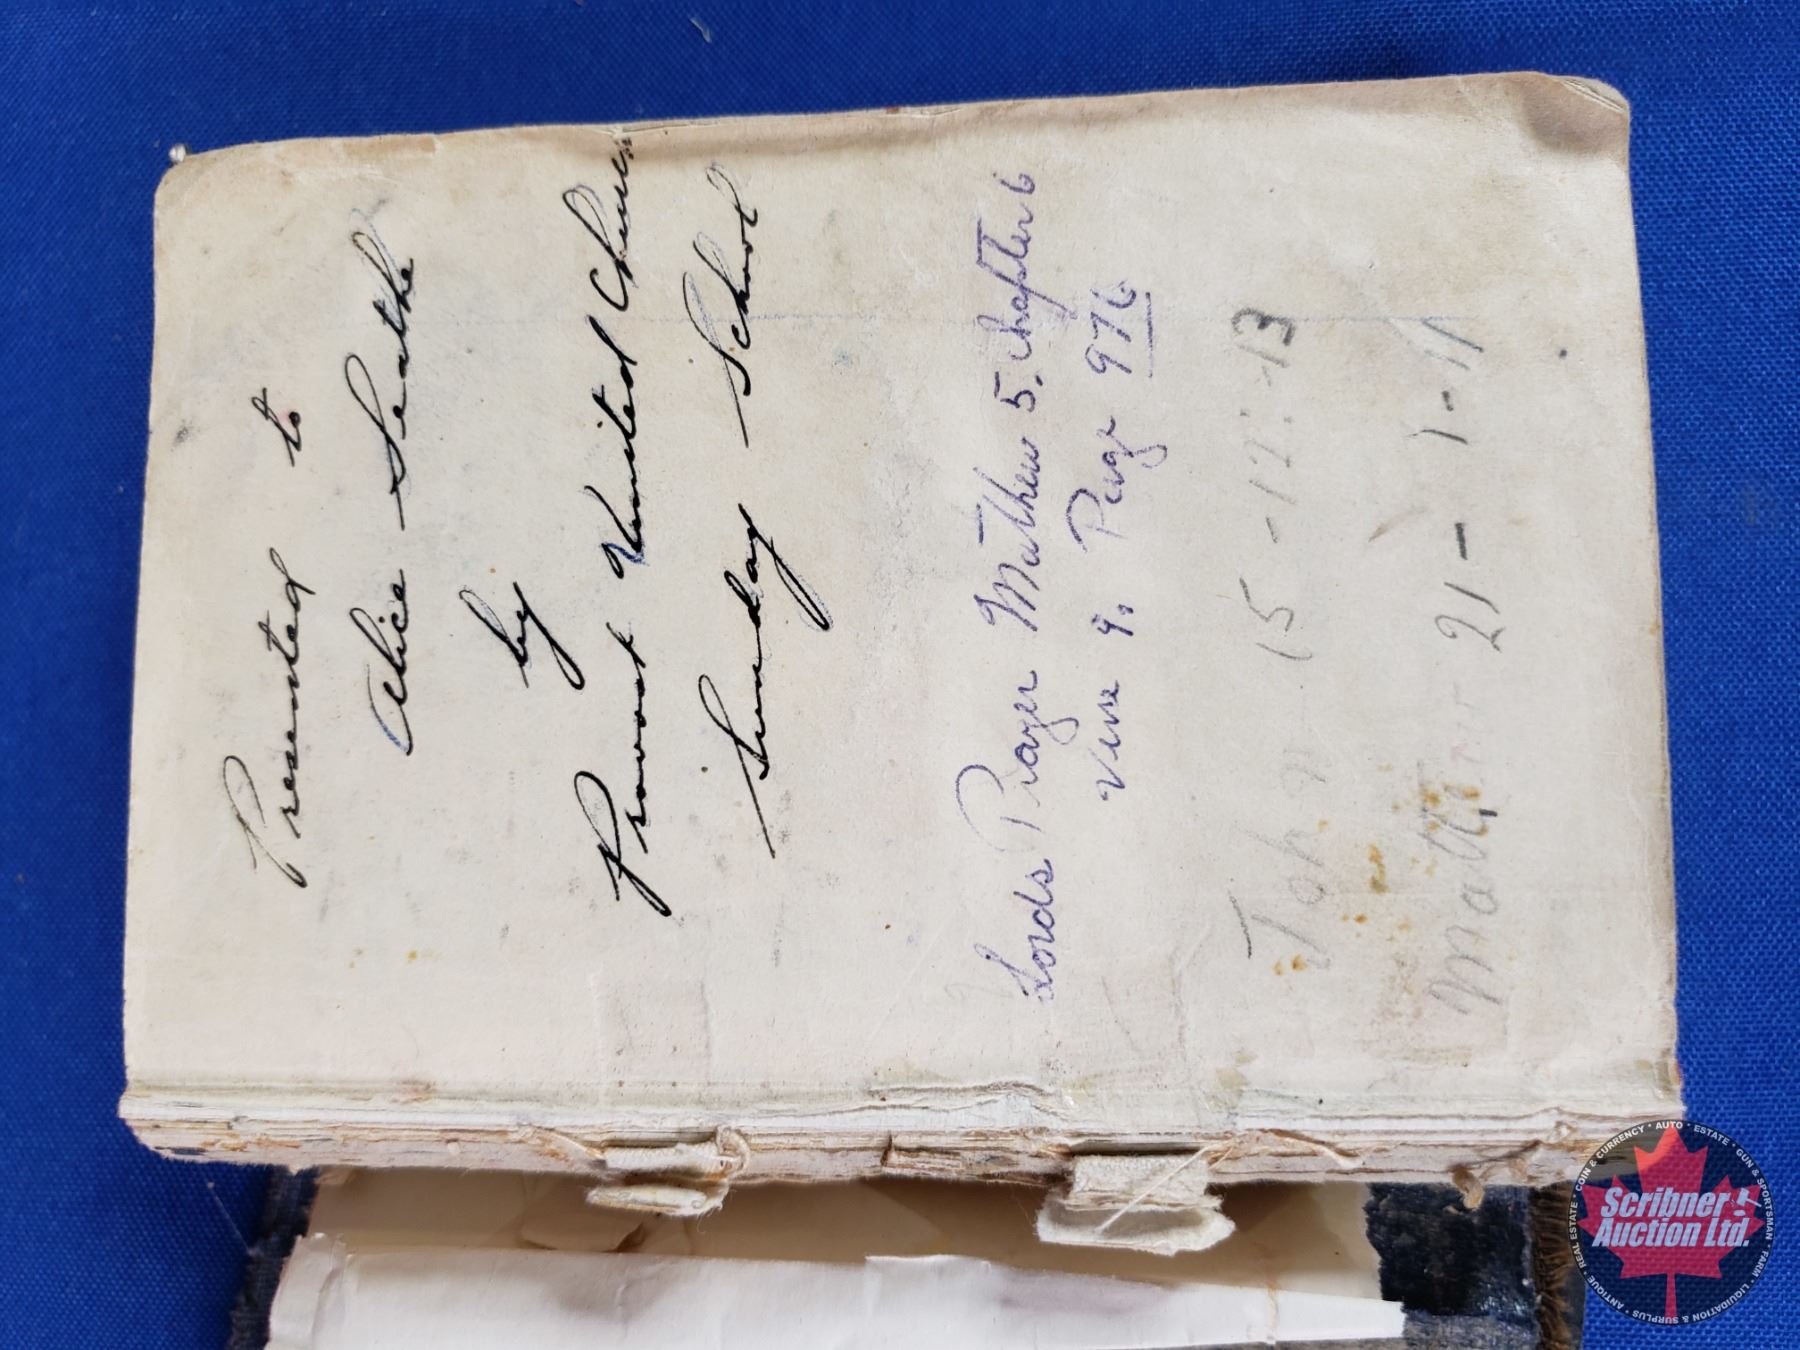 Presented to
Alice Seathe
by
Provost United Church
Sunday School
Lords Prayer Mathew 5, Chapter 6
Verse 9. Page 976
John 15-12:13
Matthew 21-1-11
Scribner
Auction Ltd.
COIN & CURRENCY • AUTO • ESTATE • GUN & SPORTSMAN • FARM • LIQUIDATION & SURPLUS • ANTIQUE • REAL ESTATE •